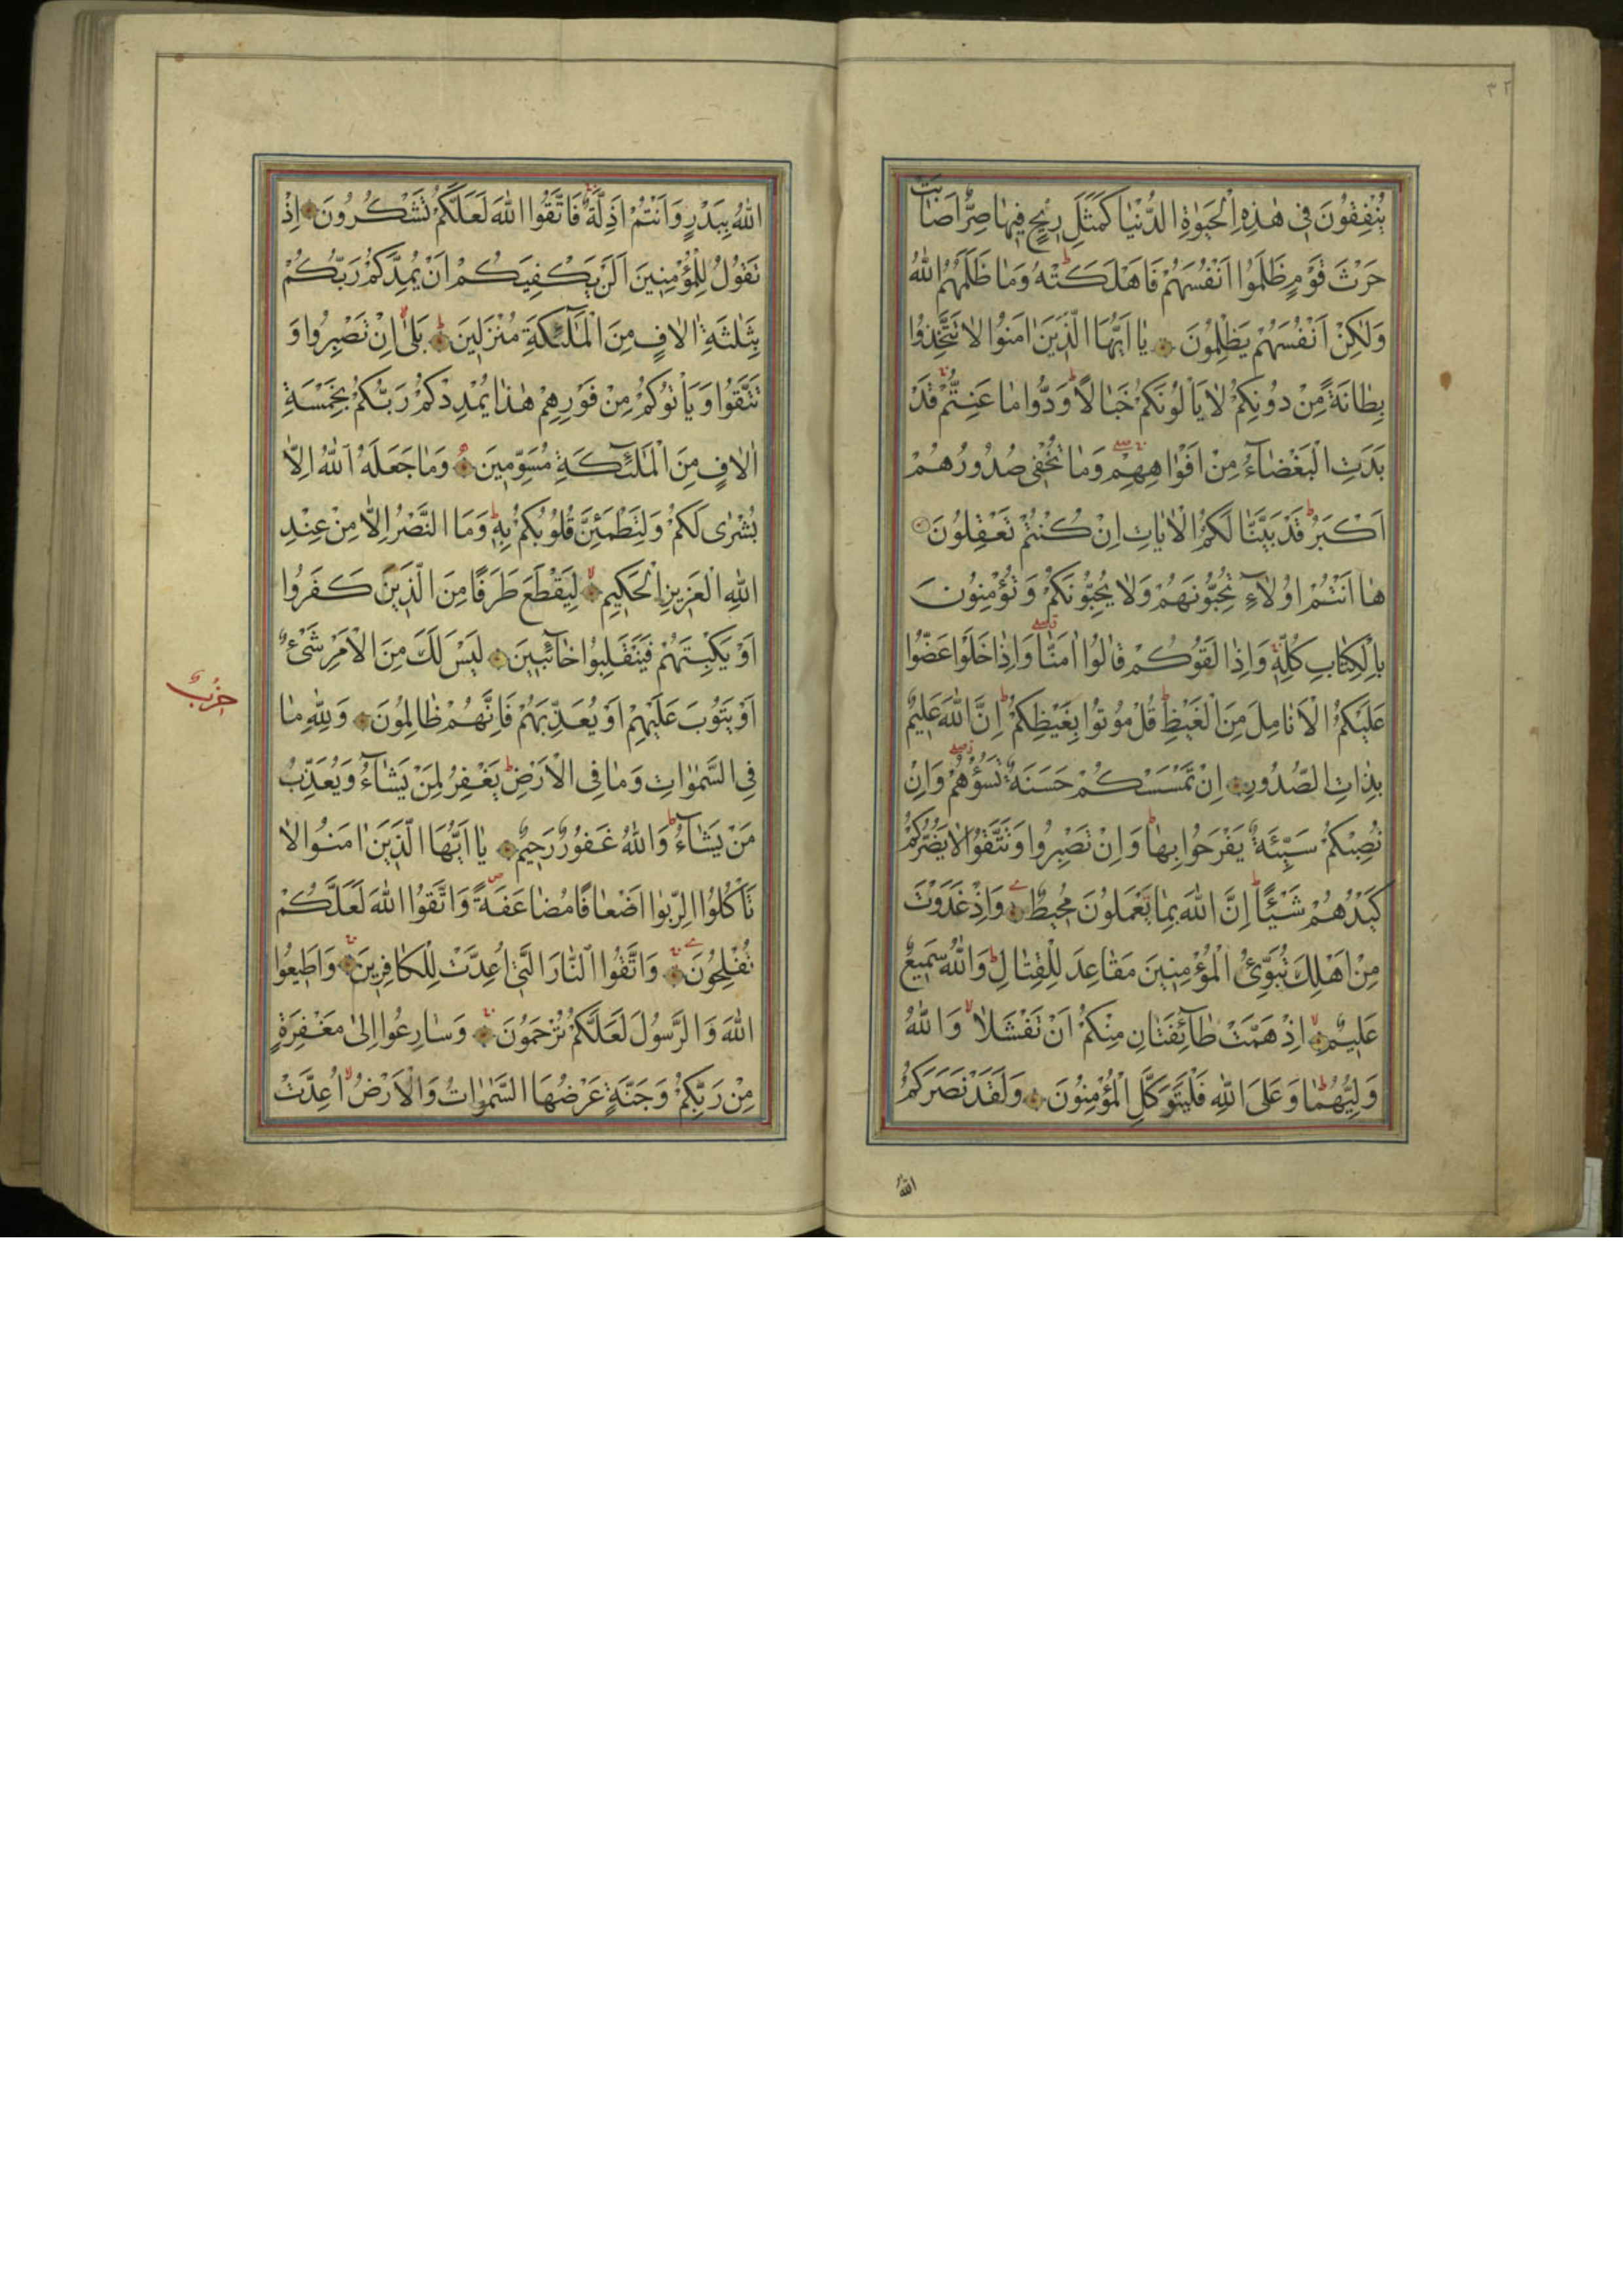 ٣٢
يُنْفِقُونَ فِي هٰذِهِ الْحَيٰوةِ الدُّنْيَا كَمَثَلِ رِيحٍ فِيهَا صِرٌّ اَصَابَتْ
حَرْثَ قَوْمٍ ظَلَمُوا اَنْفُسَهُمْ فَاَهْلَكَتْهُ وَمَا ظَلَمَهُمُ اللّٰهُ
وَلٰكِنْ اَنْفُسَهُمْ يَظْلِمُونَ يَا اَيُّهَا الَّذِينَ اٰمَنُوا لَا تَتَّخِذُوا
بِطَانَةً مِنْ دُونِكُمْ لَا يَأْلُونَكُمْ خَبَالًا وَدُّوا مَا عَنِتُّمْ قَدْ
بَدَتِ الْبَغْضَاءُ مِنْ اَفْوَاهِهِمْ وَمَا تُخْفِي صُدُورُهُمْ
اَكْبَرُ قَدْ بَيَّنَّا لَكُمُ الْاٰيَاتِ اِنْ كُنْتُمْ تَعْقِلُونَ
هَا اَنْتُمْ اُولَاءِ تُحِبُّونَهُمْ وَلَا يُحِبُّونَكُمْ وَتُؤْمِنُونَ
بِالْكِتَابِ كُلِّهِ وَاِذَا لَقُوكُمْ قَالُوا اٰمَنَّا وَاِذَا خَلَوْا عَضُّوا
عَلَيْكُمُ الْاَنَامِلَ مِنَ الْغَيْظِ قُلْ مُوتُوا بِغَيْظِكُمْ اِنَّ اللّٰهَ عَلِيمٌ
بِذَاتِ الصُّدُورِ اِنْ تَمْسَسْكُمْ حَسَنَةٌ تَسُؤْهُمْ وَاِنْ
تُصِبْكُمْ سَيِّئَةٌ يَفْرَحُوا بِهَا وَاِنْ تَصْبِرُوا وَتَتَّقُوا لَا يَضُرُّكُمْ
كَيْدُهُمْ شَيْئًا اِنَّ اللّٰهَ بِمَا يَعْمَلُونَ مُحِيطٌ وَاِذْ غَدَوْتَ
مِنْ اَهْلِكَ تُبَوِّئُ الْمُؤْمِنِينَ مَقَاعِدَ لِلْقِتَالِ وَاللّٰهُ سَمِيعٌ
عَلِيمٌ اِذْ هَمَّتْ طَائِفَتَانِ مِنْكُمْ اَنْ تَفْشَلَا وَاللّٰهُ
وَلِيُّهُمَا وَعَلَى اللّٰهِ فَلْيَتَوَكَّلِ الْمُؤْمِنُونَ وَلَقَدْ نَصَرَكُمُ
اللّٰهُ
اللّٰهُ بِبَدْرٍ وَاَنْتُمْ اَذِلَّةٌ فَاتَّقُوا اللّٰهَ لَعَلَّكُمْ تَشْكُرُونَ اِذْ
تَقُولُ لِلْمُؤْمِنِينَ اَلَنْ يَكْفِيَكُمْ اَنْ يُمِدَّكُمْ رَبُّكُمْ
بِثَلٰثَةِ اٰلَافٍ مِنَ الْمَلٰئِكَةِ مُنْزَلِينَ بَلٰى اِنْ تَصْبِرُوا وَ
تَتَّقُوا وَيَأْتُوكُمْ مِنْ فَوْرِهِمْ هٰذَا يُمْدِدْكُمْ رَبُّكُمْ بِخَمْسَةِ
اٰلَافٍ مِنَ الْمَلٰئِكَةِ مُسَوِّمِينَ وَمَا جَعَلَهُ اللّٰهُ اِلَّا
بُشْرٰى لَكُمْ وَلِتَطْمَئِنَّ قُلُوبُكُمْ بِهِ وَمَا النَّصْرُ اِلَّا مِنْ عِنْدِ
اللّٰهِ الْعَزِيزِ الْحَكِيمِ لِيَقْطَعَ طَرَفًا مِنَ الَّذِينَ كَفَرُوا
اَوْ يَكْبِتَهُمْ فَيَنْقَلِبُوا خَائِبِينَ لَيْسَ لَكَ مِنَ الْاَمْرِ شَيْءٌ
اَوْ يَتُوبَ عَلَيْهِمْ اَوْ يُعَذِّبَهُمْ فَاِنَّهُمْ ظَالِمُونَ وَلِلّٰهِ مَا
حزب
فِي السَّمٰوَاتِ وَمَا فِي الْاَرْضِ يَغْفِرُ لِمَنْ يَشَاءُ وَيُعَذِّبُ
مَنْ يَشَاءُ وَاللّٰهُ غَفُورٌ رَحِيمٌ يَا اَيُّهَا الَّذِينَ اٰمَنُوا لَا
تَأْكُلُوا الرِّبٰوا اَضْعَافًا مُضَاعَفَةً وَاتَّقُوا اللّٰهَ لَعَلَّكُمْ
تُفْلِحُونَ وَاتَّقُوا النَّارَ الَّتِي اُعِدَّتْ لِلْكَافِرِينَ وَاَطِيعُوا
اللّٰهَ وَالرَّسُولَ لَعَلَّكُمْ تُرْحَمُونَ وَسَارِعُوا اِلٰى مَغْفِرَةٍ
مِنْ رَبِّكُمْ وَجَنَّةٍ عَرْضُهَا السَّمٰوَاتُ وَالْاَرْضُ اُعِدَّتْ